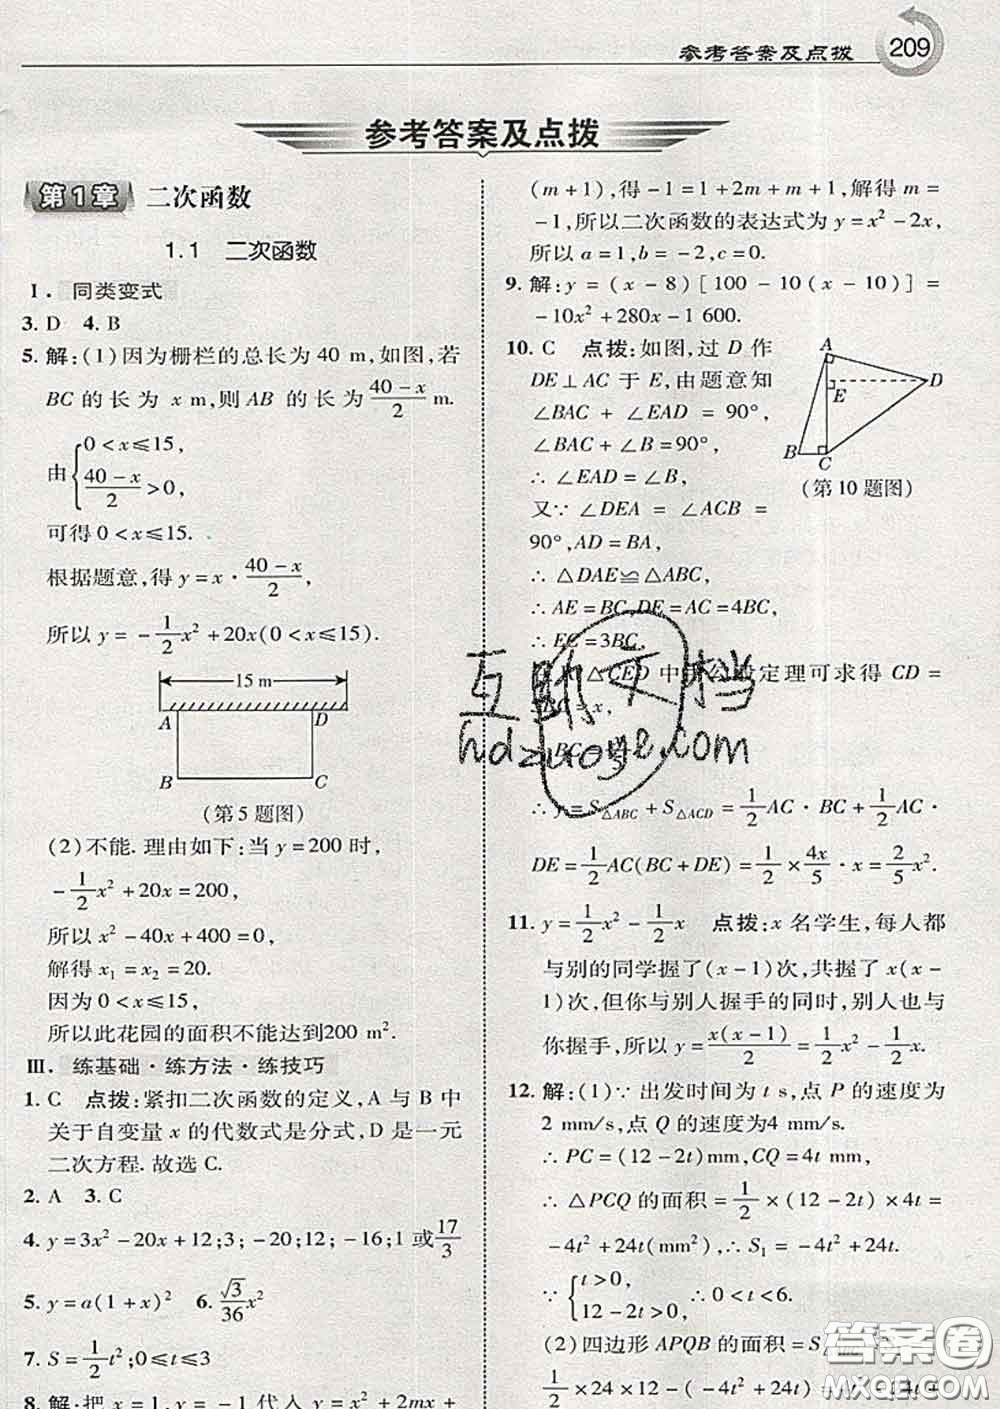 参考答案及点拨 209
参考答案及点拨
第1章 二次函数
1.1 二次函数
Ⅰ. 同类变式
3. D 4. B
5. 解:(1)因为栅栏的总长为 40 m,如图,若
BC 的长为 x m,则 AB 的长为 (40-x)/2 m.
由 { 0<x≤15, (40-x)/2>0,
可得 0<x≤15.
根据题意,得 y=x·(40-x)/2,
所以 y=-1/2x²+20x(0<x≤15).
15 m
A D
B C
(第5题图)
(2)不能. 理由如下:当 y=200 时,
-1/2x²+20x=200,
所以 x²-40x+400=0,
解得 x₁=x₂=20.
因为 0<x≤15,
所以此花园的面积不能达到200 m².
Ⅲ. 练基础·练方法·练技巧
1. C 点拨:紧扣二次函数的定义,A 与 B 中
关于自变量 x 的代数式是分式,D 是一元
二次方程. 故选 C.
2. A 3. C
4. y=3x²-20x+12;3;-20;12;-16;1 或 17/3
5. y=a(1+x)² 6. √3/36x²
7. S=1/2t²;0≤t≤3
8. 解:把 x=1,y=-1 代入 y=x²+2mx+
(m+1),得 -1=1+2m+m+1,解得 m=
-1,所以二次函数的表达式为 y=x²-2x,
所以 a=1,b=-2,c=0.
9. 解:y=(x-8)[100-10(x-10)]=
-10x²+280x-1 600.
10. C 点拨:如图,过 D 作
DE⊥AC 于 E,由题意知
∠BAC+∠EAD=90°,
∠BAC+∠B=90°,
∴∠EAD=∠B.
又∵∠DEA=∠ACB=
90°,AD=BA,
A
D
E
B
C
(第10题图)
∴△DAE≌△ABC,
∴AE=BC,DE=AC=4BC,
∴EC=3BC.
△CED 中由勾股定理可求得 CD=
=x,
∴y=S△ABC+S△ACD=1/2AC·BC+1/2AC·
DE=1/2AC(BC+DE)=1/2×4x/5·x=2/5x².
11. y=1/2x²-1/2x 点拨:x 名学生,每人都
与别的同学握了(x-1)次,共握了 x(x-
1)次,但你与别人握手的同时,别人也与
你握手,所以 y=x(x-1)/2=1/2x²-1/2x.
12. 解:(1)∵出发时间为 t s,点 P 的速度为
2 mm/s,点 Q 的速度为4 mm/s.
∴PC=(12-2t)mm,CQ=4t mm,
∴△PCQ 的面积=1/2×(12-2t)×4t=
-4t²+24t(mm²),∴S₁=-4t²+24t.
∵{ t>0, 12-2t>0, ∴0<t<6.
(2)四边形 APQB 的面积=S
1/2×24×12-(-4t²+24t)
互助文档
hdzuoye.com
答案圈
MXQE.COM